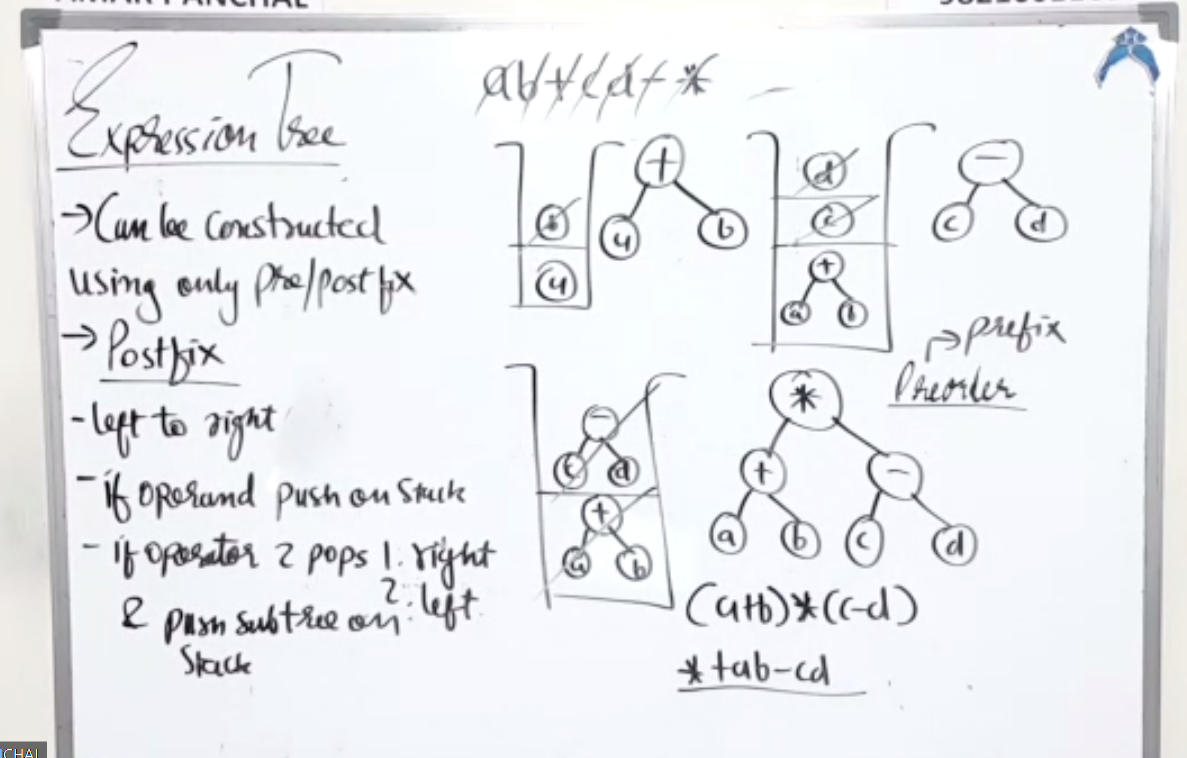 Expression Tree
→ Can be constructed
using only pre/postfix
→ Postfix
- left to right
- if operand push on Stack
- if operator 2 pops 1. right
2. left
& push subtree on
Stack
ab+cd-*
b
a
+
a b
d
c
+
a b
-
c d
→ prefix
Preorder
-
c d
+
a b
*
+ -
a b c d
(a+b)*(c-d)
*+ab-cd
CHAL